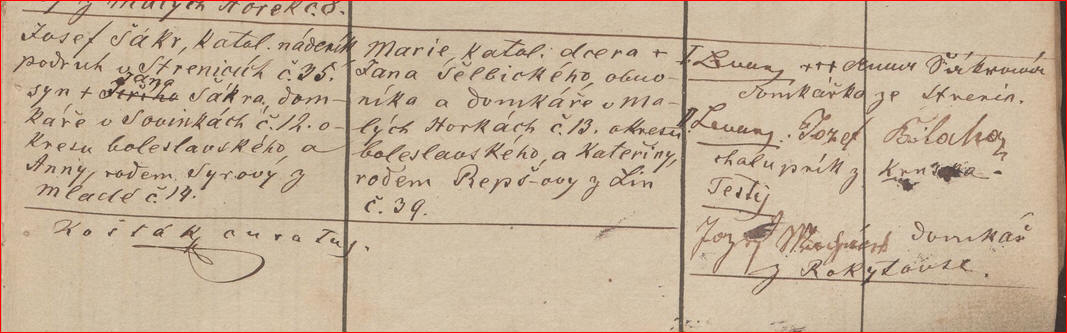 z Malých Horek č. 8.
Josef Šákr, katol. nádeník
podruh v Strenicích č. 35.
Jána
syn + Jiřího Šákra, dom-
káře v Sovinkách č. 12. o-
kresu boleslavského, a
Anny, rodem Syrovy z
Mladé č. 14.
Košťák curatus.
Marie, katol. dcera +
Jana Šelbického, obuv-
níka a domkáře v Ma-
lých Horkách č. 13. okresu
boleslavského, a Kateřiny,
rodem Repš-ovy z Lin
č. 39.
I. Levans +++ Anna Šákrová
domkářka ze Strenic.
II. Levans. Jozef
chalupník z Krnska -
Testij
Jozef domkář
z Rokytovse.